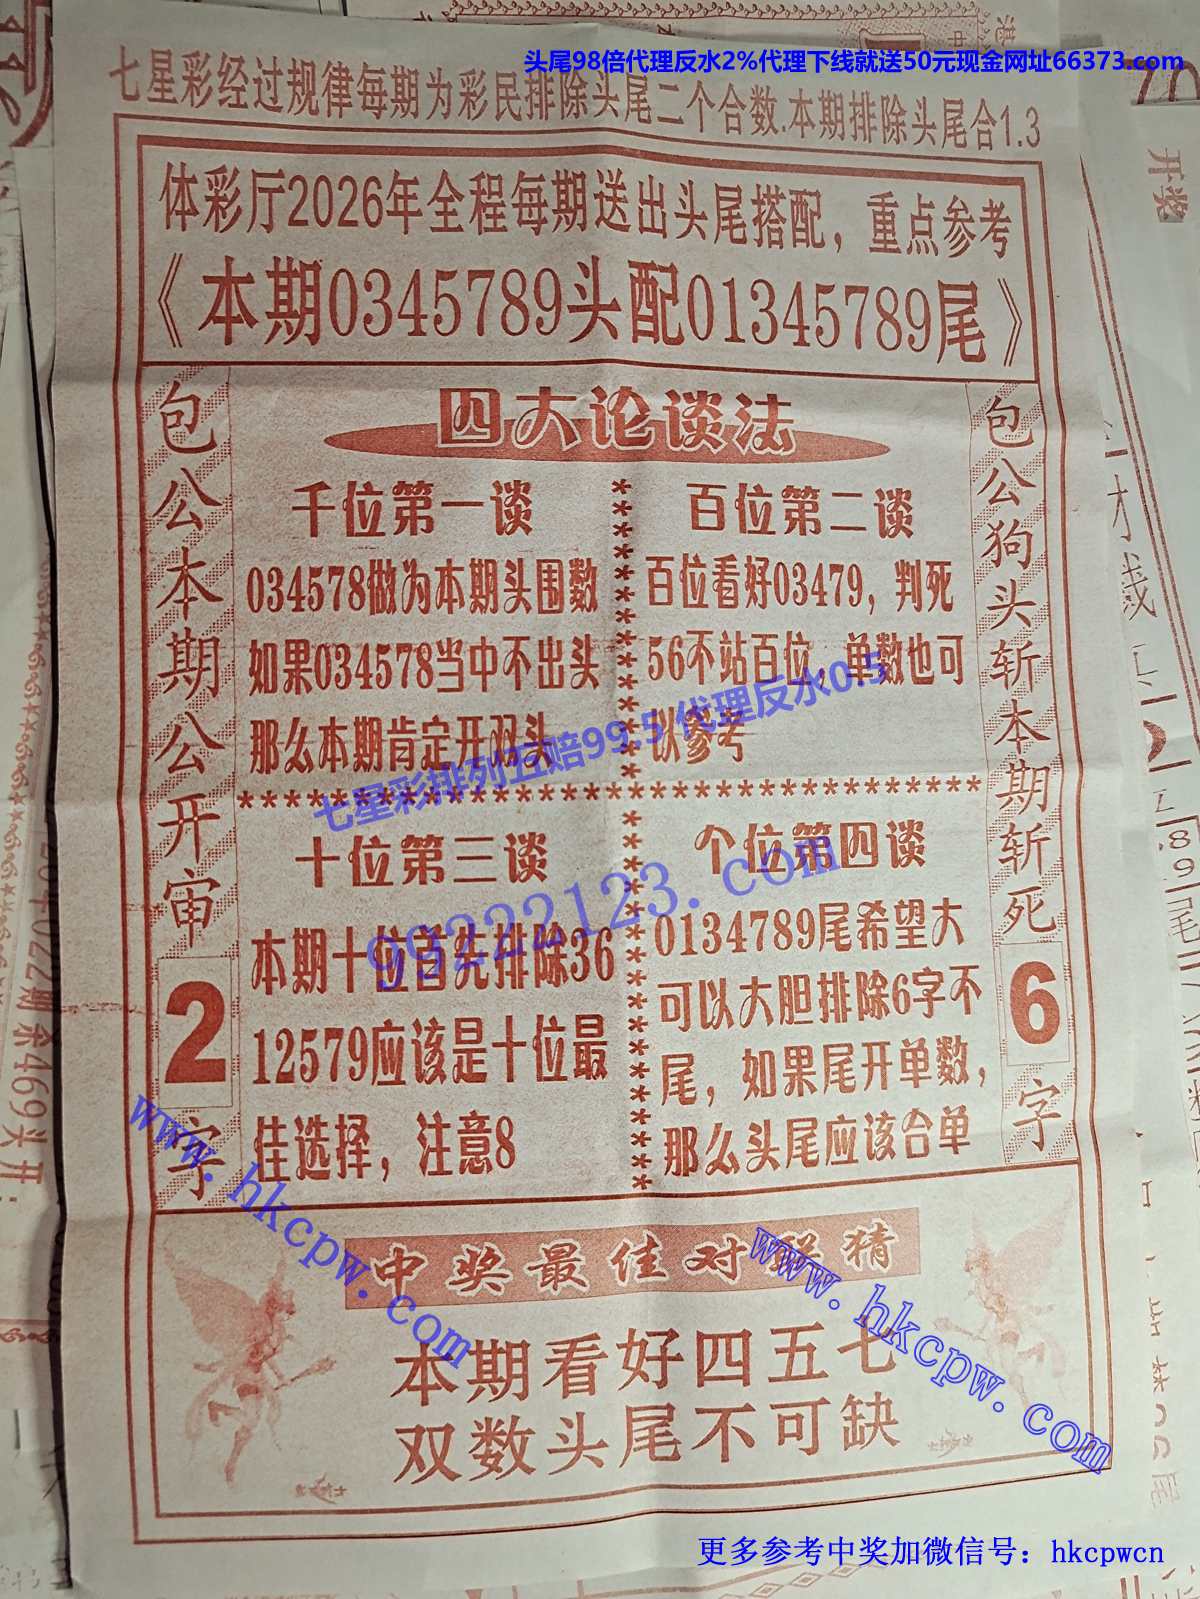 头尾98倍代理反水2%代理下线就送50元现金网址66373.com
七星彩经过规律每期为彩民排除头尾二个合数.本期排除头尾合1.3
体彩厅2026年全程每期送出头尾搭配，重点参考
《本期0345789头配01345789尾》
包公本期公开审2字
四大论谈法
千位第一谈
034578做为本期头围数
如果034578当中不出头
那么本期肯定开双头
百位第二谈
百位看好03479，判死
56不站百位，单数也可
以参考
十位第三谈
本期十位首先排除36
12579应该是十位最
佳选择，注意8
个位第四谈
0134789尾希望大
可以大胆排除6字不
尾，如果尾开单数，
那么头尾应该合单
包公狗头斩本期斩死6字
中奖最佳对联猜
本期看好四五七
双数头尾不可缺
七星彩排列五赔99.5 代理反水0.5
99222123.com
www.hkcpw.com
www.hkcpw.com
更多参考中奖加微信号：hkcpwcn
开奖